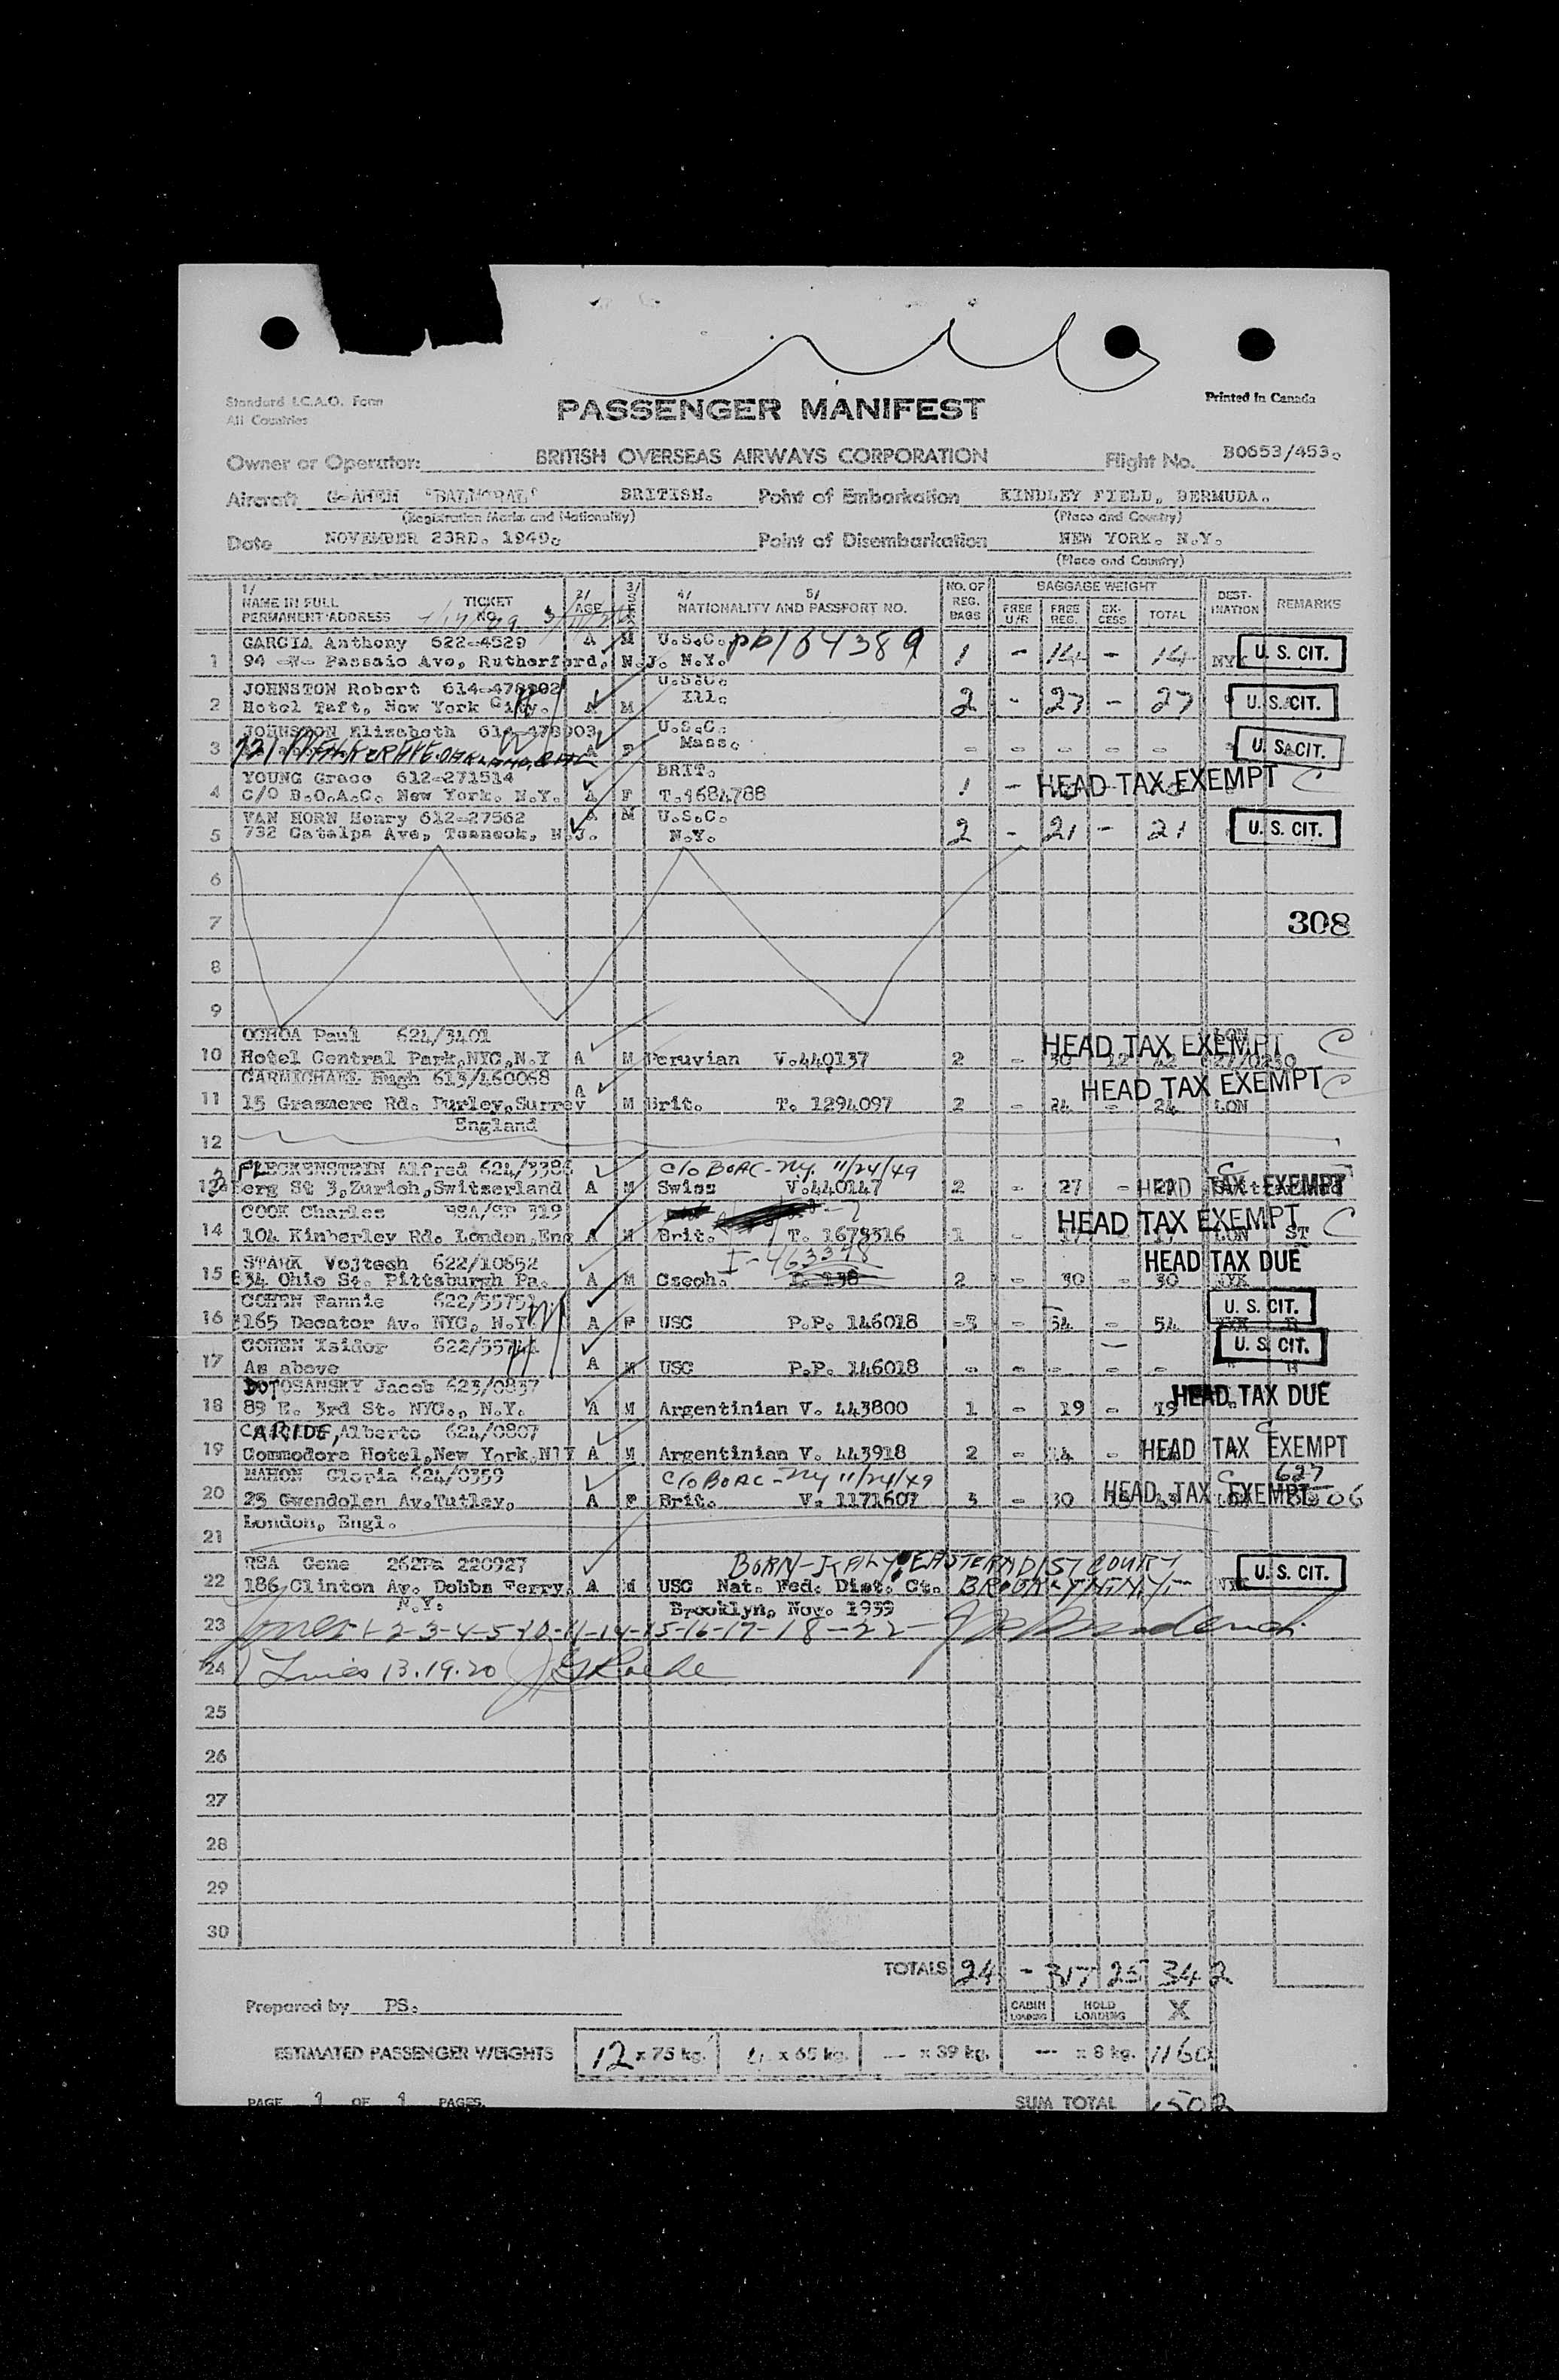 Standard I.C.A.O. Form
All Countries
PASSENGER MANIFEST
Printed in Canada
Owner or Operator: BRITISH OVERSEAS AIRWAYS CORPORATION Flight No. B0653/453.
Aircraft G-AHEN "BALMORAL" BRITISH. Point of Embarkation KINDLEY FIELD, BERMUDA.
(Registration Marks and Nationality) (Place and Country)
Date NOVEMBER 23RD. 1949. Point of Disembarkation NEW YORK. N.Y.
(Place and Country)
1/ NAME IN FULL PERMANENT ADDRESS TICKET NO. 2/ AGE 3/ SEX 4/ 5/ NATIONALITY AND PASSPORT NO. NO. OF REG. BAGS BAGGAGE WEIGHT FREE U/R FREE REG. EX-CESS TOTAL DEST-INATION REMARKS
GARCIA Anthony 622-4529 A M U.S.C. PP164389
1 94 -W- Passaic Ave, Rutherford, N.J. N.Y. 1 - 14 - 14 NYK U. S. CIT.
JOHNSTON Robert 614-478902 U.S.C.
2 Hotel Taft, New York City. A M Ill. 2 - 27 - 27 U. S. CIT.
JOHNSTON Elizabeth 614-478903 U.S.C.
3 A F Mass. - - - - - U. S. CIT.
YOUNG Grace 612-271514 BRIT.
4 C/O B.O.A.C. New York. N.Y. A F T.1684788 1 - HEAD TAX EXEMPT C
VAN HORN Henry 612-27562 A M U.S.C.
5 732 Catalpa Ave, Teaneck, N.J. N.Y. 2 - 21 - 21 U. S. CIT.
6
7 308
8
9
OCHOA Paul 624/3401 LON
10 Hotel Central Park,NYC,N.Y A M Peruvian V.440137 2 - 30 12 42 27/0230 HEAD TAX EXEMPT C
CARMICHAEL Hugh 613/460068 A HEAD TAX EXEMPT C
11 15 Grasmere Rd. Purley,Surrey M Brit. T. 1294097 2 - 24 - 24 LON
12 England
FLECKENSTEIN Alfred 624/3386 c/o BOAC - NY. 11/24/49 C
13 berg St 3,Zurich,Switzerland A M Swiss V.440147 2 - 27 - 27 HEAD TAX EXEMPT
COOK Charles BSA/SP 319 HEAD TAX EXEMPT C
14 104 Kimberley Rd. London,Eng A M Brit. T. 1679316 1 - 17 - 17 LON ST
STARK Vojtech 622/10652 I-463398 HEAD TAX DUE
15 634 Ohio St. Pittsburgh Pa. A M Czech. I. 138 2 - 30 - 30 NYK
COHEN Fannie 622/55751 U. S. CIT.
16 165 Decator Av. NYC, N.Y. A F USC P.P. 146018 -3 - 54 - 54 NYK R
COHEN Isidor U. S. CIT.
17 As above A M USC P.P. 146018 - - - - - " R
BOTOSANSKY Jacob 623/0837 HEAD TAX DUE
18 89 E. 3rd St. NYC., N.Y. A M Argentinian V. 443800 1 - 19 - 19
CARIDE, Alberto 624/0807 C
19 Commodore Hotel,New York,N17 A M Argentinian V. 443918 2 - 14 - HEAD TAX EXEMPT
MAHON Gloria 624/0359 c/o BOAC - NY 11/24/49 C 627
20 25 Gwendolen Av.Putley, A F Brit. V. 1171607 3 - 30 HEAD TAX EXEMPT LON
21 London, Engl.
REA Gene 262Pa 220927 BORN - ITALY. EASTERN DIST COURT
22 186 Clinton Av. Dobbs Ferry, A M USC Nat. Fed. Dist. Ct. BROOKLYN, N.Y. NYK U. S. CIT.
N.Y. Brooklyn, Nov. 1939
23 Lines 1-2-3-4-5-10-11-14-15-16-17-18-22
24 Lines 13.19.20 J G Roche
25
26
27
28
29
30
TOTALS 24 - 317 25 342
Prepared by PS. CABIN LOADING HOLD LOADING X
ESTIMATED PASSENGER WEIGHTS 12 x 75 kg. 4 x 65 kg. -- x 39 kg. -- x 8 kg. 1160
PAGE 1 OF 1 PAGES. SUM TOTAL 1502